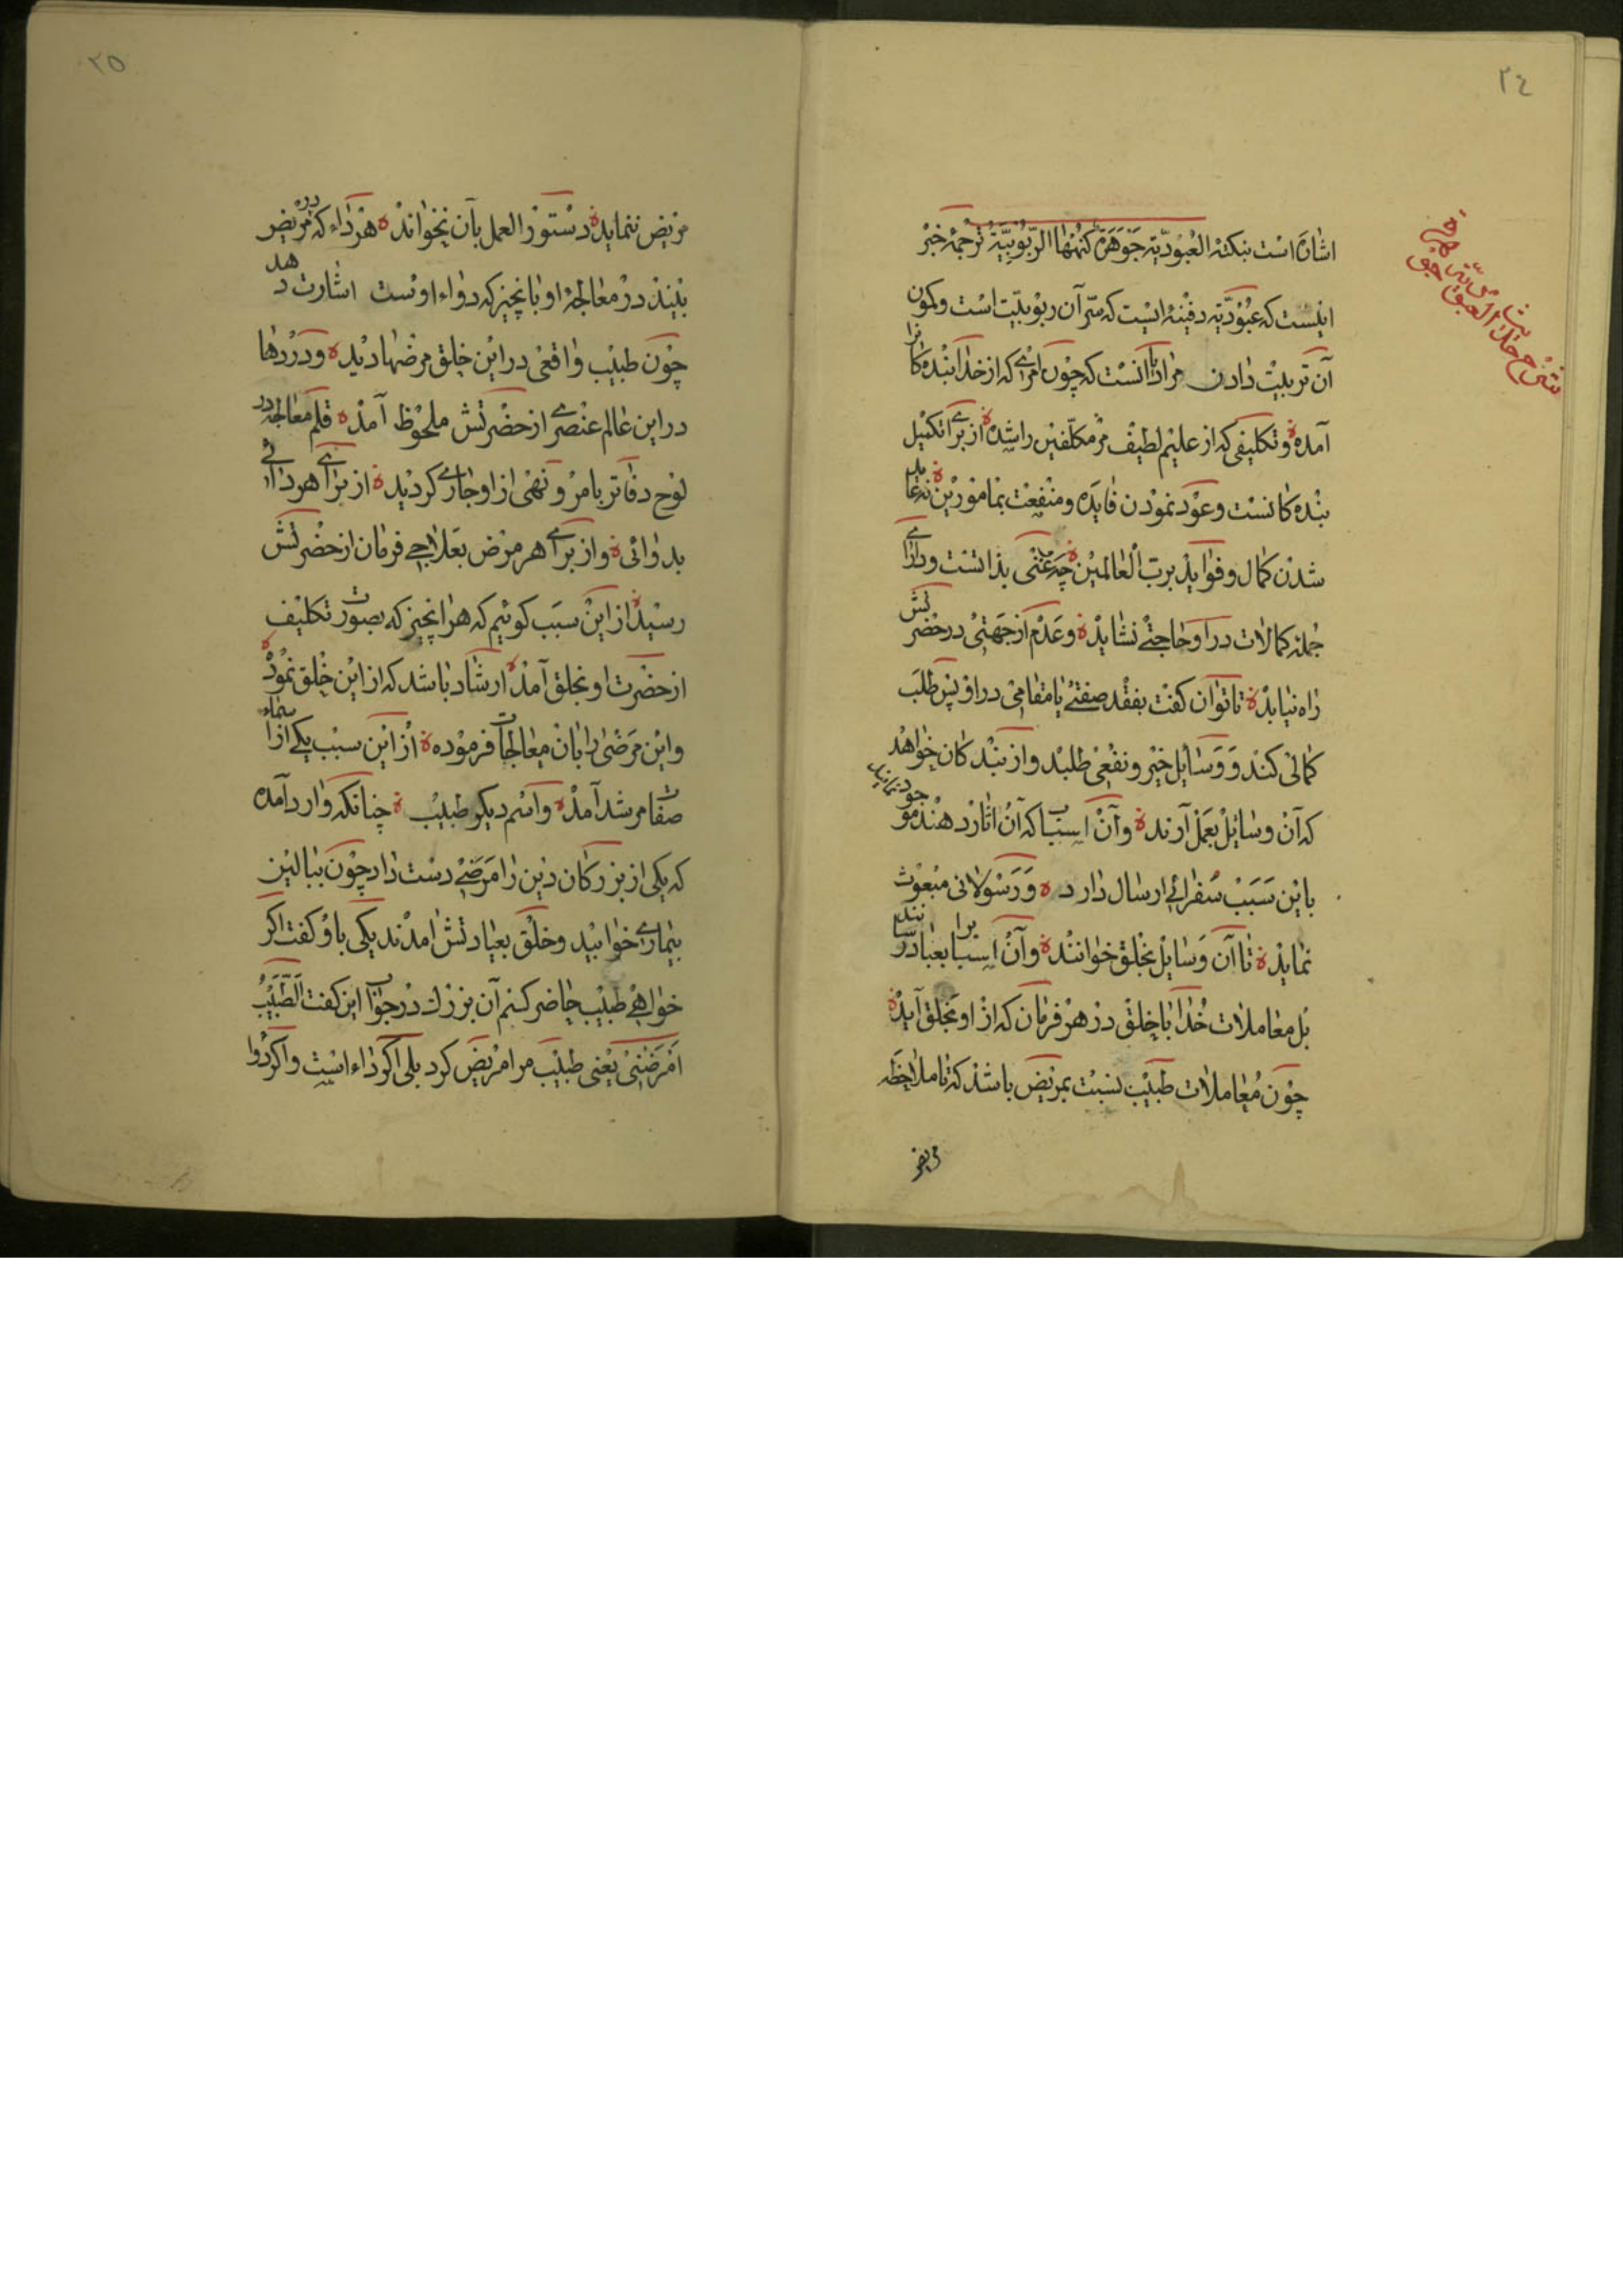 ٢٤
اشاره است بنکته العبودیّة جوهرة کنهها الربوبیّة ترجمهٔ خبر
اینست که عبودیّة دفینه ایست که سرّ آن ربوبیّت است و کمون
آن تربیت دادن مراد با آنست که چون امری که از خدا بنده کانرا
آمده و تکلیفی که از علیم لطیف مر مکلّفین را شده از برای تکمیل
بنده کانست و عود نمودن فایده و منفعت بمامورین نه عاید
شدن کمال و فواید برب العالمین چه غنی بذاتست و دارای
جمله کمالات در او حاجتی نشاید و عدم از جهتی در حضرتش
راه نیابد تا توان گفت بفقد صفتی یا مقامی در او پس طلب
کمالی کند و وسایل خیر و نفعی طلبد و از بندکان خواهد
که آن وسایل بعمل آرند و آن اسباب که آن اثار دهند موجود نمایند
باین سبب سفرائی ارسال دارد و رسولانی مبعوث
نماید تا آن وسایل بخلق خوانند و آن اسباب را بعباد رسانند
بل معاملات خدا با خلق در هر فرمان که از او بخلق آید
چون معاملات طبیب نسبت بمریض باشد که تا ملاحظه
مریض
شرح حدیث العبودیة جوهرة
٢٥
مریض ننماید دستور العمل بآن نخواند هر داء که در مریض
بیند در معالجهٔ او بانچیز که دواء اوست اشارت دهد
چون طبیب واقعی در این خلق مرضها دید و دردها
در این عالم عنصری از حضرتش ملحوظ آمد قلم معالجه در
لوح دفاتر بامر و نهی از او جاری کردید از برای هر دائی
بدوائی و از برای هر مرض بعلاجی فرمان از حضرتش
رسید از این سبب کوئیم که هر انچیز که بصورت تکلیف
از حضرت او بخلق آمد ارشاد باشد که از این خلق نموده
و این مرضی را بان معالجات فرموده از این سبب یکی از اسماء
صفات مرشد آمد و اسم دیکر طبیب چنانکه وارد آمده
که یکی از بزرکان دین را مرضی دست داد چون ببالین
بیماری خوابید و خلق بعیادتش امدند یکی باو کفت اکر
خواهی طبیب حاضر کنم آن بزرک در جواب این کفت الطّبیب
امرضنی یعنی طبیب مرا مریض کرد بلی اکر داء است و اکر دوا